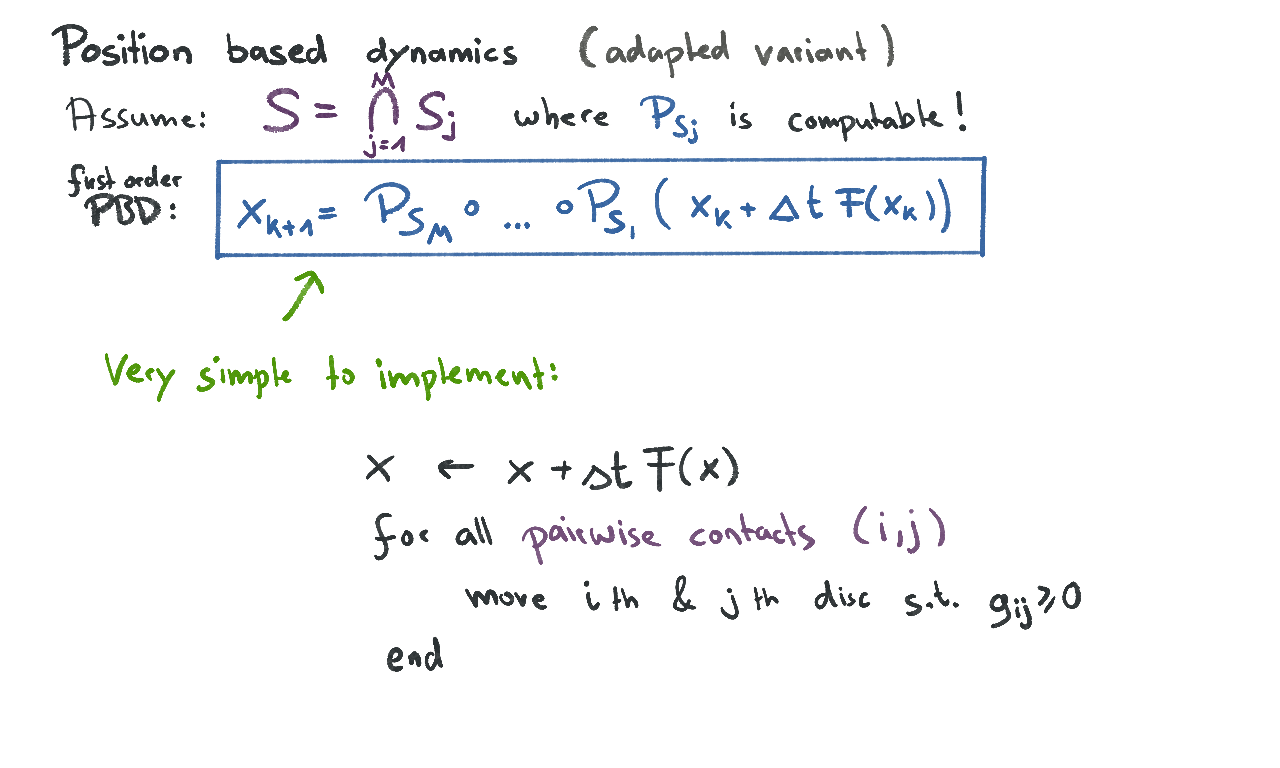 Position based dynamics (adapted variant)
Assume: S = ⋂_{j=1}^{M} S_j where P_{S_j} is computable!
first order
PBD: x_{k+1} = P_{S_M} ∘ ... ∘ P_{S_1} ( x_k + Δt F(x_k))
Very simple to implement:
x ← x + Δt F(x)
for all pairwise contacts (i,j)
move i th & j th disc s.t. g_{ij} ⩾ 0
end